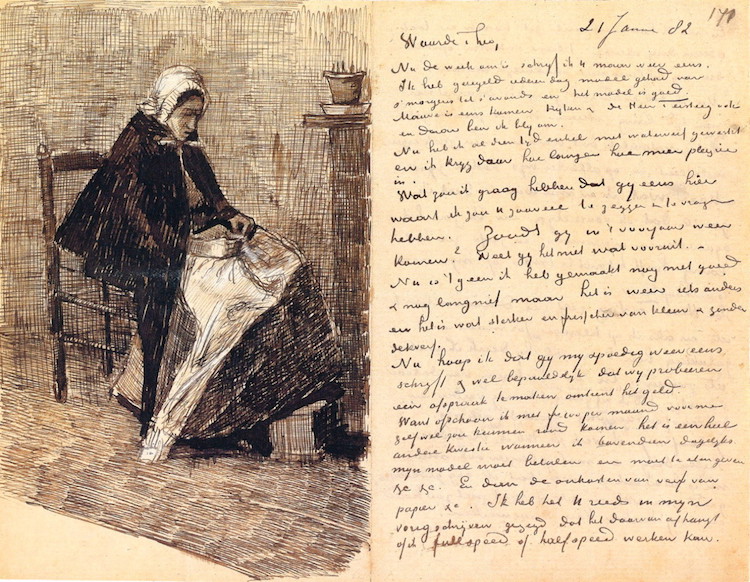 21 Janu 82 171
Waarde Theo,
Nu de week om is schryf ik U maar weer eens.
Ik heb geregeld iederen dag model gehad van
s'morgens tot s'avonds en het model is goed.
Mauve is eens komen kyken & de Heer Tersteeg ook
en daar ben ik bly om.
Nu heb ik al dien tyd enkel met waterverf gewerkt
en ik kryg daar hoe langer hoe meer plezier
in.
Wat zou ik graag hebben dat gy eens hier
waart ik zou U zooveel te zeggen & te vragen
hebben. Zoudt gy in 't voorjaar weer
komen? Weet gy het met wat vooruit.
Nu is 't geen ik heb gemaakt nog niet goed
& nog lang niet maar het is weer iets anders
en het is wat sterker en frisscher van kleur & zonder
dekverf.
Nu hoop ik dat gy my spoedig weer eens
schryft & wel bepaaldelyk dat wy probeeren
een afspraak te maken omtrent het geld.
Want ofschoon ik met per maand voor me
zelf wel zou kunnen rond komen het is een heel
andere kwestie wanneer ik bovendien dagelyks
myn model moet betalen en moet te eten geven
&c &c. En dan de onkosten van verf van
papier &c. Ik heb het U reeds in myn
vorig schryven gezegd dat het daarvan afhangt
of ik full speed of half speed werken kan.